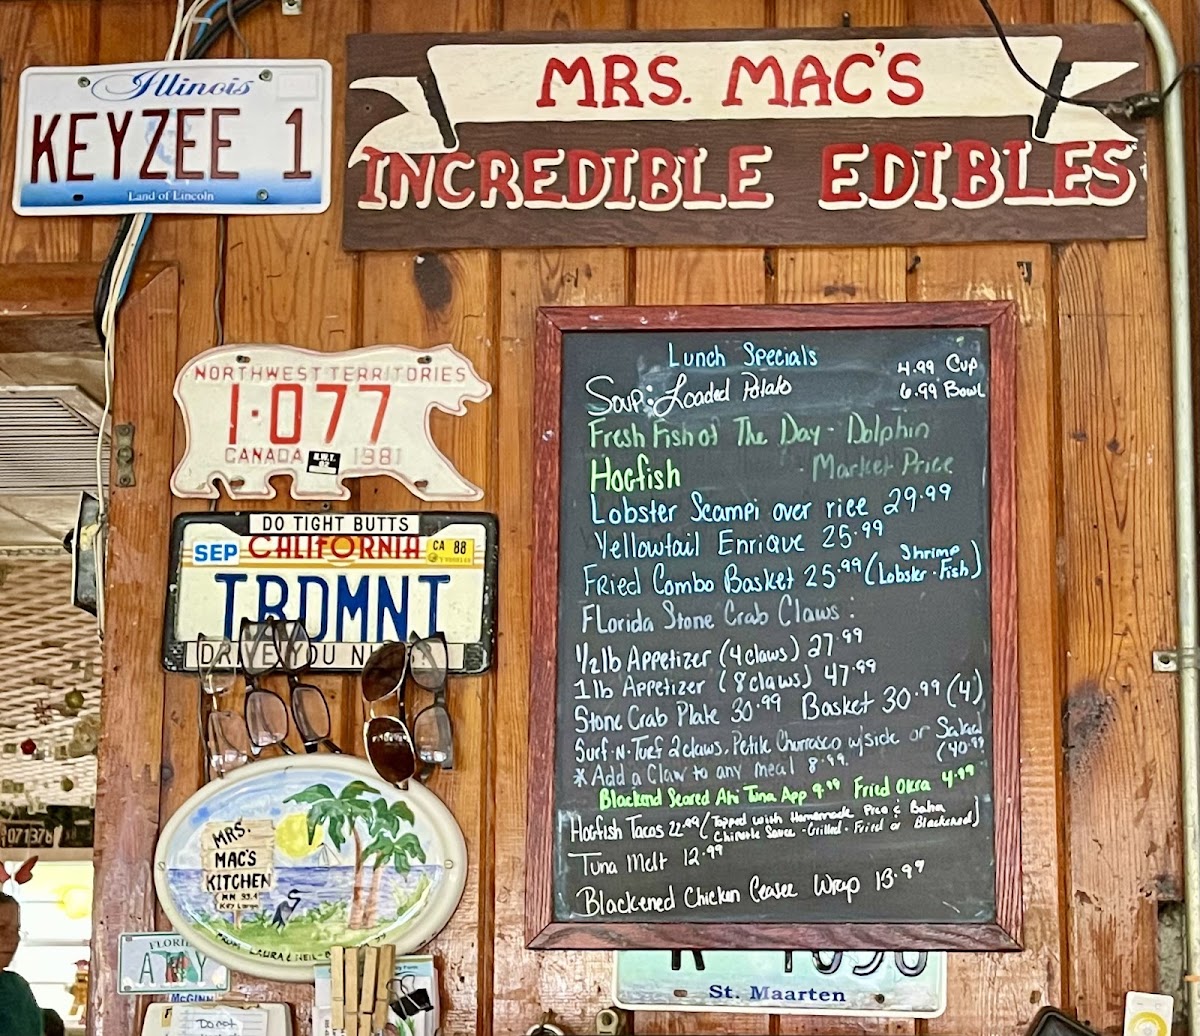 Illinois
KEYZEE 1
Land of Lincoln
MRS. MAC'S
INCREDIBLE EDIBLES
NORTHWEST TERRITORIES
1·077
CANADA N.W.T. 82 1981
DO TIGHT BUTTS
SEP CALIFORNIA CA 88
TRDMNT
DRIVE YOU
MRS.
MAC'S
KITCHEN
MM 99.4
Key Largo
FROM LAURA & NEIL
FLORI
A Y
McGINN
Do not
Lunch Specials
Soup: Loaded Potato 4.99 Cup
6.99 Bowl
Fresh Fish of The Day - Dolphin
Hogfish - Market Price
Lobster Scampi over rice 29.99
Yellowtail Enrique 25.99
Fried Combo Basket 25.99 (Lobster - Shrimp - Fish)
Florida Stone Crab Claws:
1/2lb Appetizer (4 claws) 27.99
1lb Appetizer (8 claws) 47.99
Stone Crab Plate 30.99 Basket 30.99 (4)
Surf-N-Turf 2 claws, Petite Churrasco w/side or Salad (40.99
*Add a Claw to any meal 8.99
Blackend Seared Ahi Tuna App 9.99 Fried Okra 4.99
Hogfish Tacos 22.99 (Topped with Homemade Pico & Baha
Chipotle Sauce - Grilled - Fried or Blackened)
Tuna Melt 12.99
Blackened Chicken Ceasee Wrap 13.99
St. Maarten